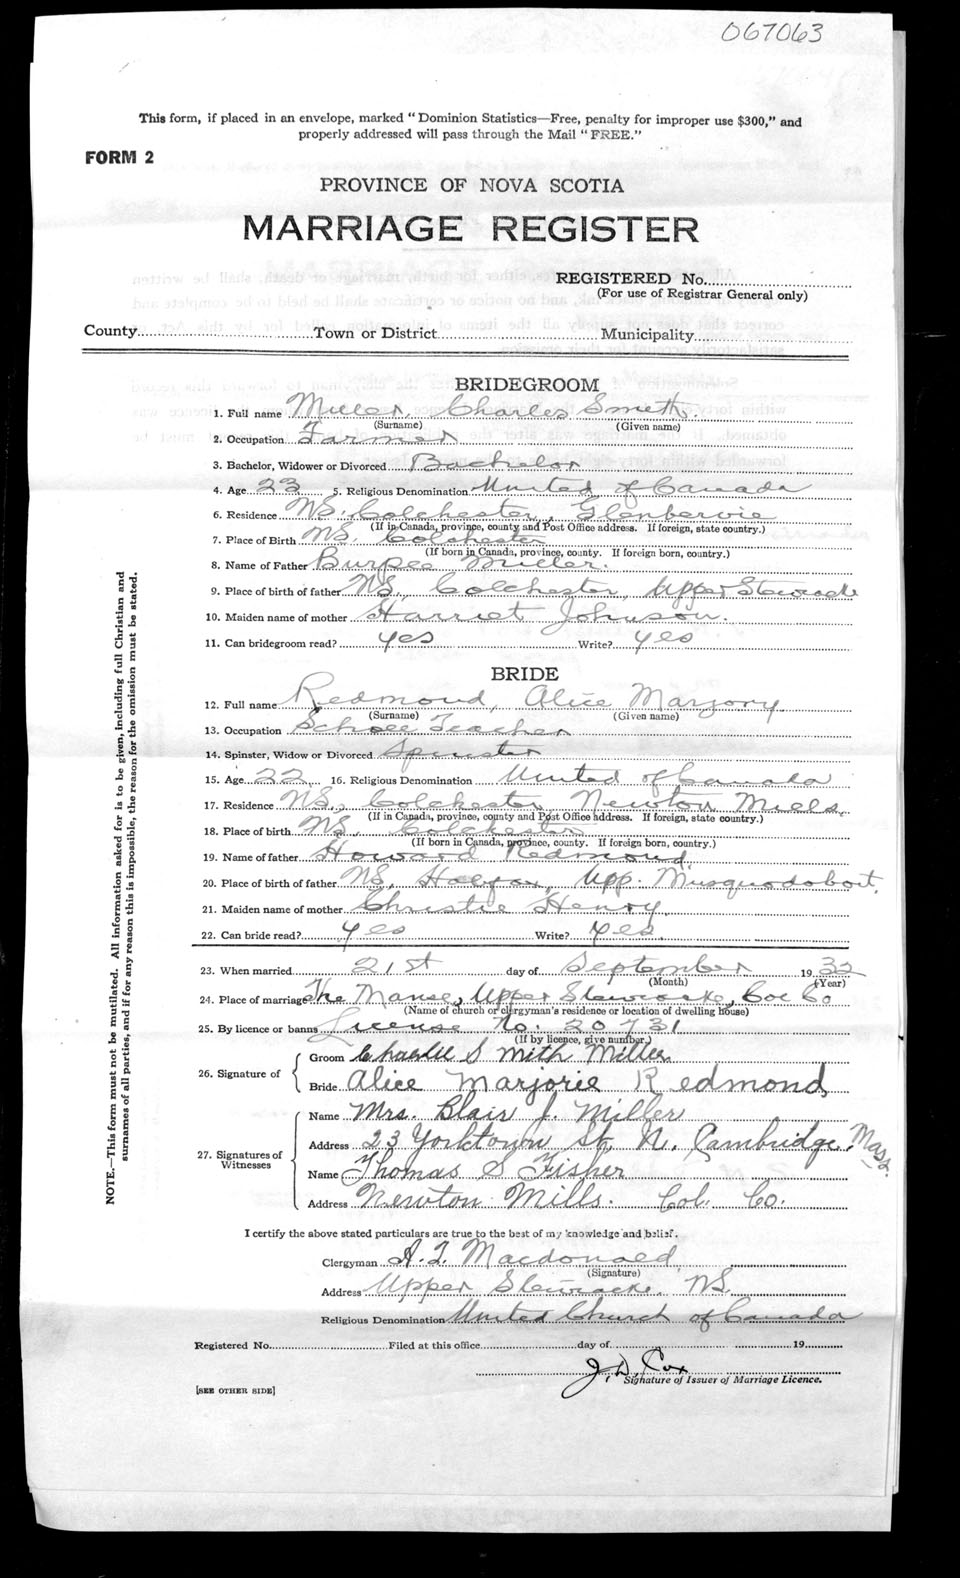 067063
This form, if placed in an envelope, marked "Dominion Statistics—Free, penalty for improper use $300," and
properly addressed will pass through the Mail "FREE."
FORM 2
PROVINCE OF NOVA SCOTIA
MARRIAGE REGISTER
REGISTERED No.
(For use of Registrar General only)
County Town or District Municipality
BRIDEGROOM
1. Full name Miller, Charles Smith
(Surname) (Given name)
2. Occupation Farmer
3. Bachelor, Widower or Divorced Bachelor
4. Age 23 5. Religious Denomination United of Canada
6. Residence N.S. Colchester, Glenbervie
(If in Canada, province, county and Post Office address. If foreign, state country.)
7. Place of Birth N.S. Colchester
(If born in Canada, province, county. If foreign born, country.)
8. Name of Father Burpee Miller.
9. Place of birth of father N.S., Colchester, Upper Stewiacke
10. Maiden name of mother Harriet Johnson.
11. Can bridegroom read? yes Write? yes
BRIDE
12. Full name Redmond, Alice Marjory
(Surname) (Given name)
13. Occupation School Teacher
14. Spinster, Widow or Divorced Spinster
15. Age 22 16. Religious Denomination United of Canada
17. Residence N.S., Colchester, Newton Mills,
(If in Canada, province, county and Post Office address. If foreign, state country.)
18. Place of birth N.S. Colchester
(If born in Canada, province, county. If foreign born, country.)
19. Name of father Howard Redmond,
20. Place of birth of father N.S, Halifax, Upp. Musquodoboit.
21. Maiden name of mother Christie Henry,
22. Can bride read? yes Write? yes
23. When married 21st day of September 19 32
(Month) (Year)
24. Place of marriage The Manse, Upper Stewiacke, Col Co
(Name of church or clergyman's residence or location of dwelling house)
25. By licence or banns License No. 20731
(If by licence, give number.)
26. Signature of
Groom Charlie Smith Miller
Bride Alice Marjorie Redmond
27. Signatures of Witnesses
Name Mrs. Blair J. Miller
Address 23 Yorktown St, N. Cambridge, Mass.
Name Thomas S Fisher
Address Newton Mills. Col. Co.
I certify the above stated particulars are true to the best of my knowledge and belief.
Clergyman A. T. Macdonald
(Signature)
Address Upper Stewiacke, N.S.
Religious Denomination United Church of Canada
Registered No. Filed at this office day of 19
J. D. Cox
Signature of Issuer of Marriage Licence.
[SEE OTHER SIDE]
NOTE.—This form must not be mutilated. All information asked for is to be given, including full Christian and
surnames of all parties, and if for any reason this is impossible, the reason for the omission must be stated.